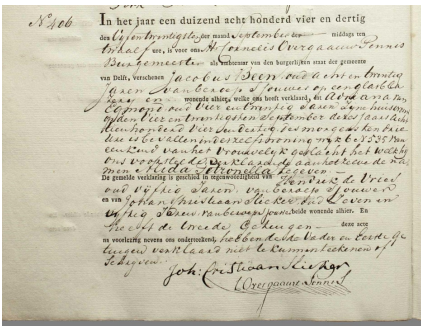 No 406
In het jaar een duizend acht honderd vier en dertig
den Vyfentwintigste der maand September des middags ten
twaalf ure, is voor ons Cornelis Overgaauw Pennis
Burgemeester als ambtenaar van den burgerlijken staat der gemeente
van Delft, verschenen Jacobus Been oud acht en twintig
Jaren van beroep Sjouwer
wonende alhier, welke ons heeft verklaard, dat Adriana van
Egmond oud Vier en twintig Jaren Zyne huisvrouw
op den Vier en twintigsten September dezes Jaars acht
tienhonderd Vier en dertig des morgens ten drie
ure is bevallen in derzelfs woning wyk 6 N 535 van
een kind van het Vrouwelyk geslacht het welk hy
ons voorstelde verklarende aan hetzelve de na
men Alida Petronella te geven
De gemelde verklaring is geschied in tegenwoordigheid van Hendrik de Vries
oud vyftig Jaren van beroep Sjouwer
en van Johan Christiaan Slieker oud Zeven en
vyftig Jaren van beroep beide wonende alhier. En
heeft de tweede Getuigen deze acte
na voorlezing nevens ons onderteekend, hebbende de Vader en eerste Ge
tuigen verklaard niet te kunnen teekenen of
schryven
Joh: Cristiaan Slieker
Overgaauw Pennis